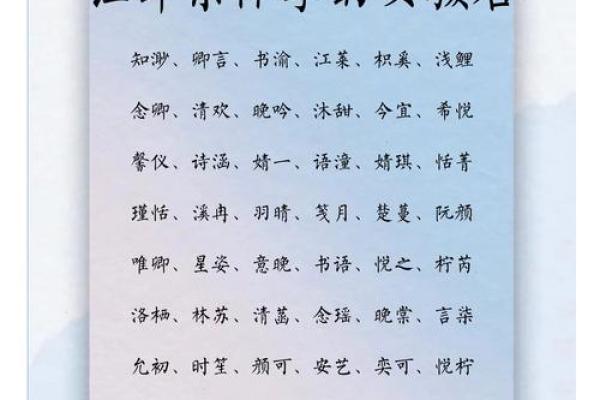 知渺、卿言、书渝、江莱、枳奚、浅鲤
念卿、清欢、晚吟、沐甜、今宜、希悦
馨仪、诗涵、婧一、语潼、婧琪、恬菁
瑾恬、溪冉、羽晴、笺月、楚蔓、阮颜
唯卿、星姿、意晚、书语、悦之、柠芮
洛栖、林苏、清菡、念瑶、晚棠、言柒
允初、时笙、颜可、安艺、奕可、悦柠